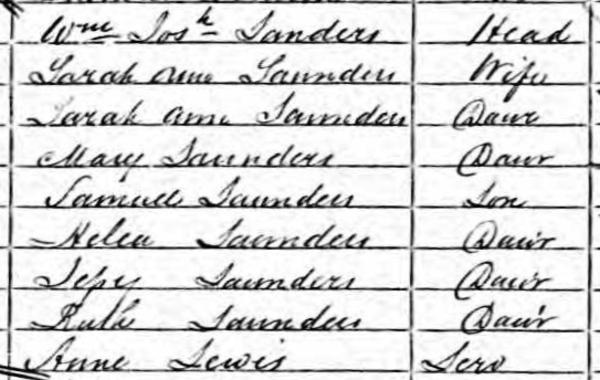 Wm Josh Sanders Head
Sarah Ann Saunders Wife
Sarah Ann Saunders Daur
Mary Saunders Daur
Samuel Saunders Son
Helen Saunders Daur
Saunders Daur
Ruth Saunders Daur
Anne Lewis Serv